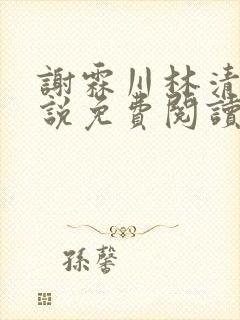 謝霖川林清
說免費閱讀
孫馨